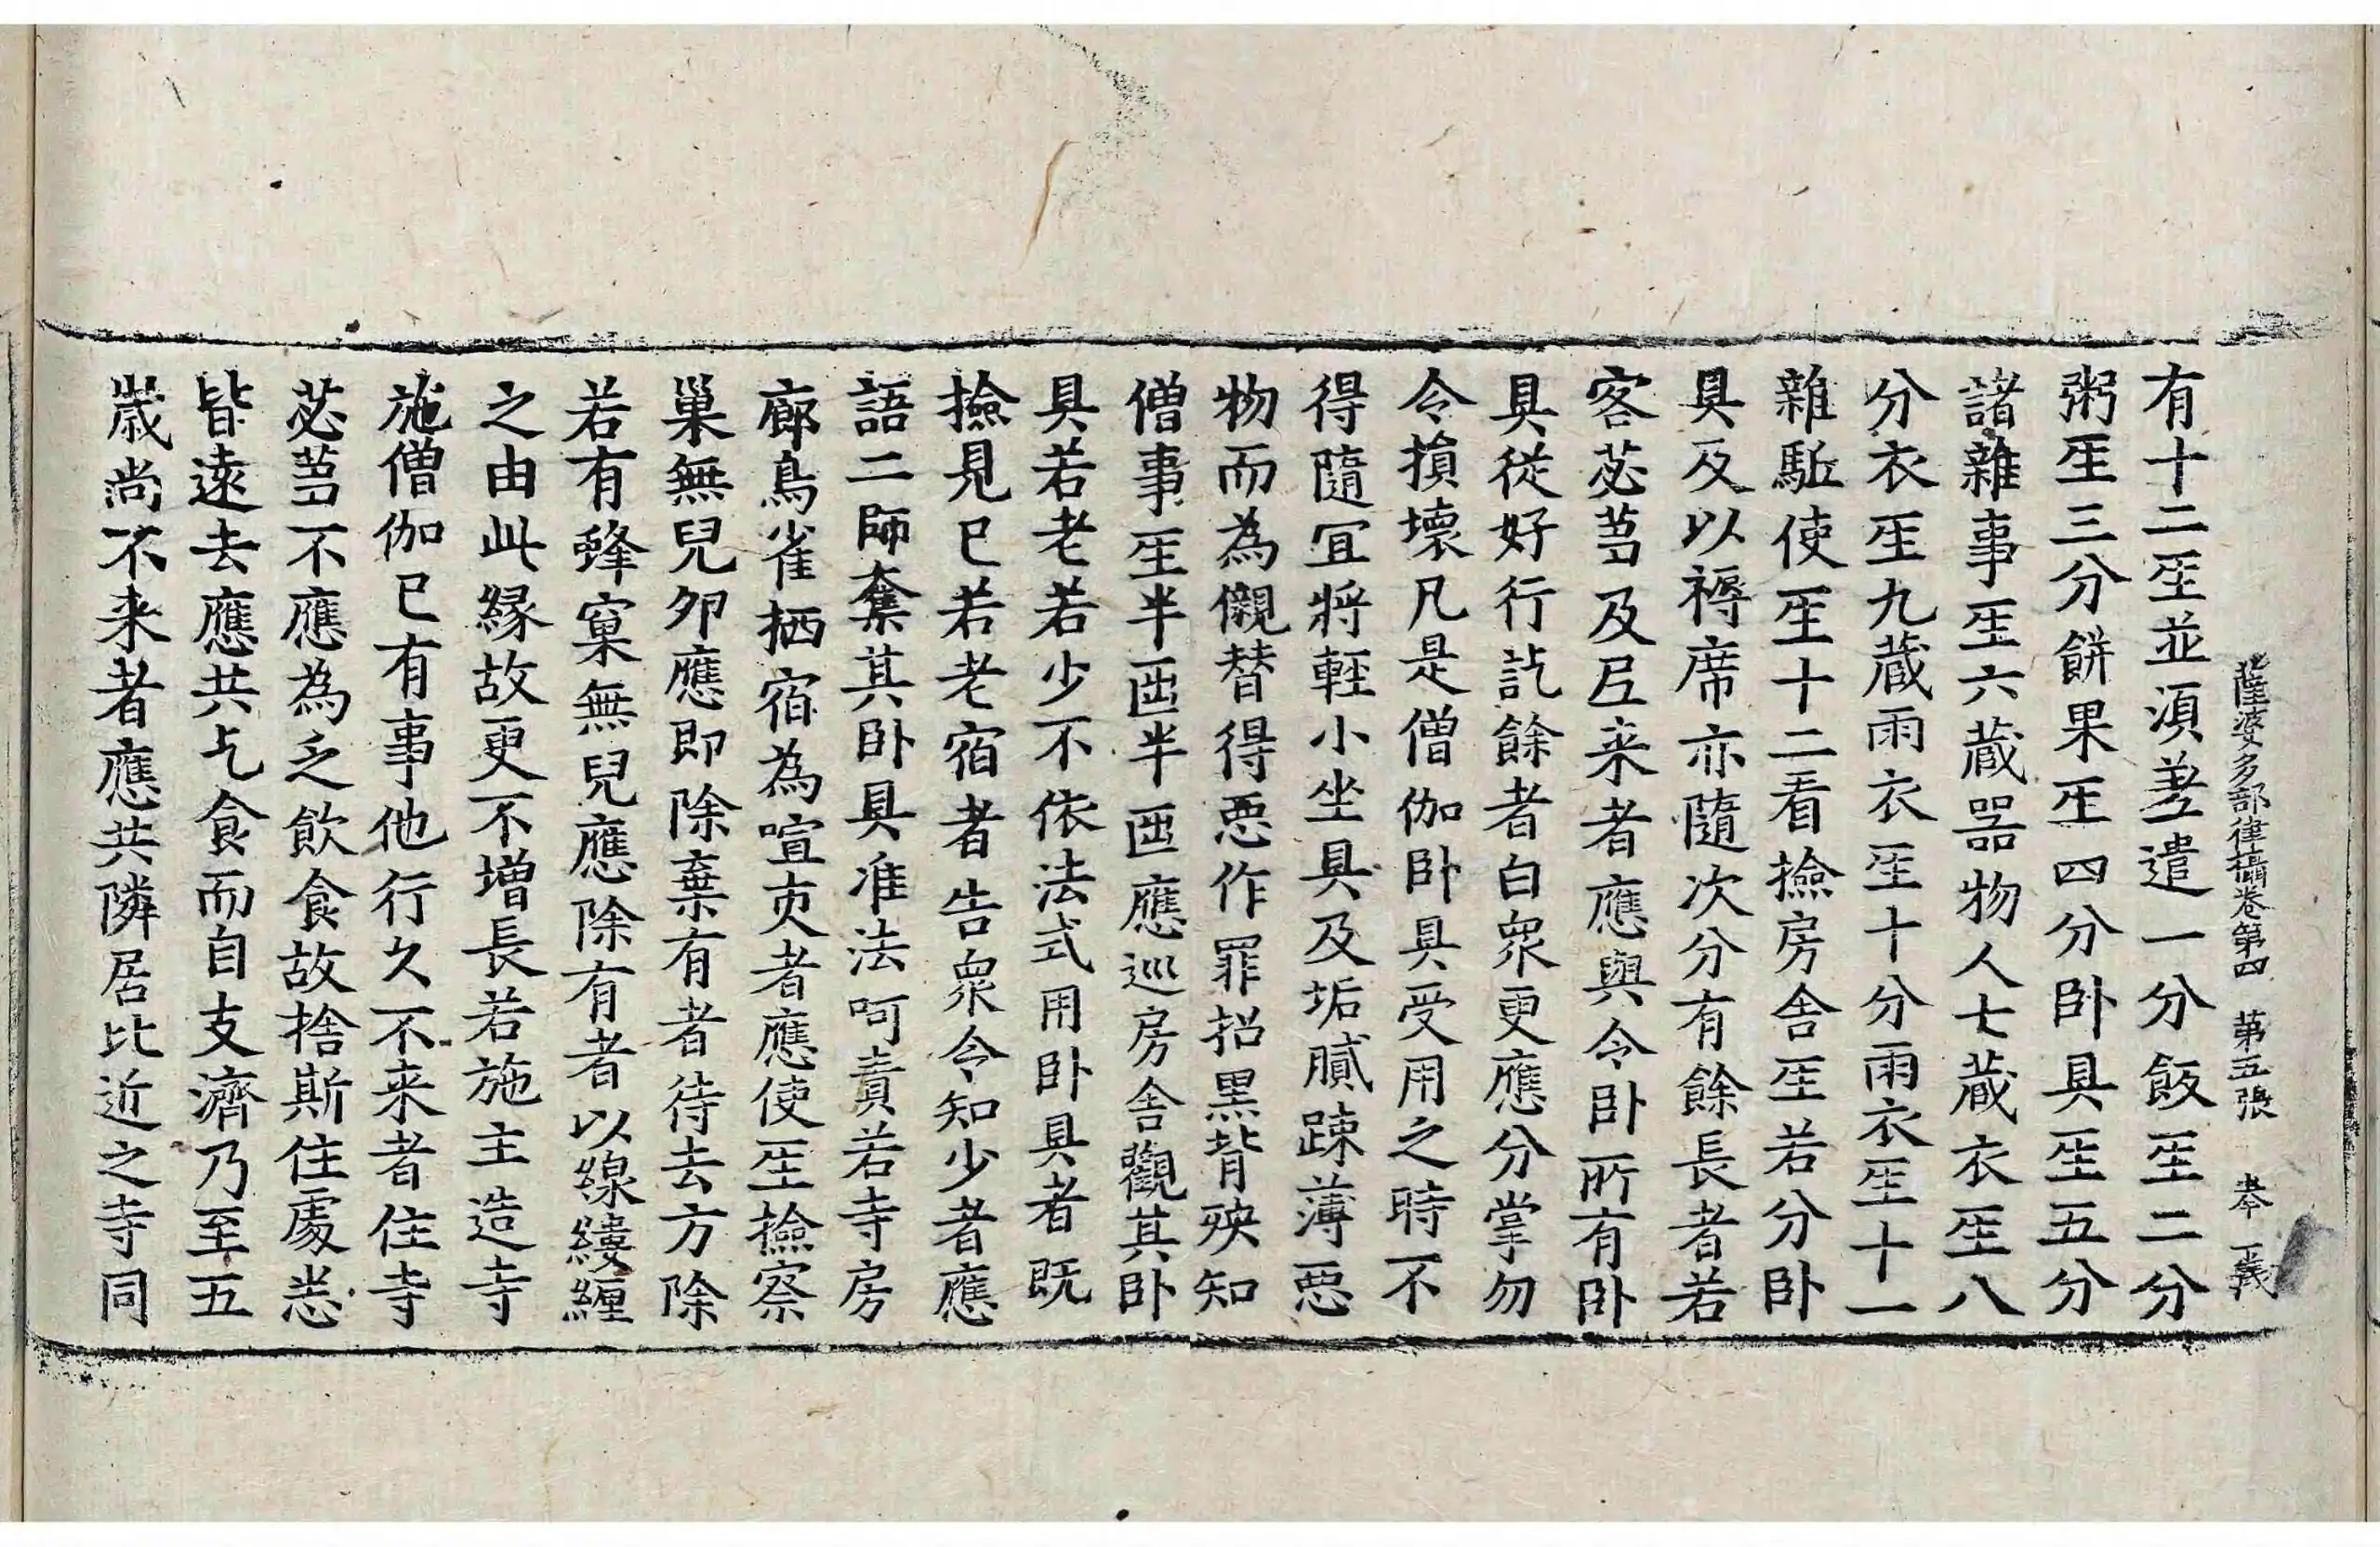 薩婆多部律攝卷第四 第五張 義
有十二𤯔並湏差遣一分飯𤯔二分
粥𤯔三分餅果𤯔四分卧具𤯔五分
諸雜事𤯔六蔵噐物人七蔵衣𤯔八
分衣𤯔九蔵雨衣𤯔十分雨衣𤯔十一
雜駈使𤯔十二看撿房舍𤯔若分卧
具及以褥席亦隨次分有餘長者若
客苾蒭及来者應與令卧所有卧
具從好行訖餘者白衆更應分掌勿
令損壞凡是僧伽卧具受用之時不
得隨宜將輕小坐具及垢膩踈薄惡
物而為儭替得惡作罪招黑背殃知
僧事𤯔半𠥱半𠥱應巡房舎觀其卧
具若老若少不依法式用卧具者既
撿見已若老宿者告衆令知少者應
語二師奪其卧具准法呵責若寺房
廊鳥雀栖宿為喧吏者應使𤯔撿察
巢無兒卵應即除棄有者待去方除
若有蜂窠無兒應除有者以線縷纏
之由此縁故更不增長若施主造寺
施僧伽已有事他行久不来者住寺
苾蒭不應為乏飲食故捨斯住處恙
皆遠去應共乞食而自支濟乃至五
歳尚不来者應共隣居比近之寺同